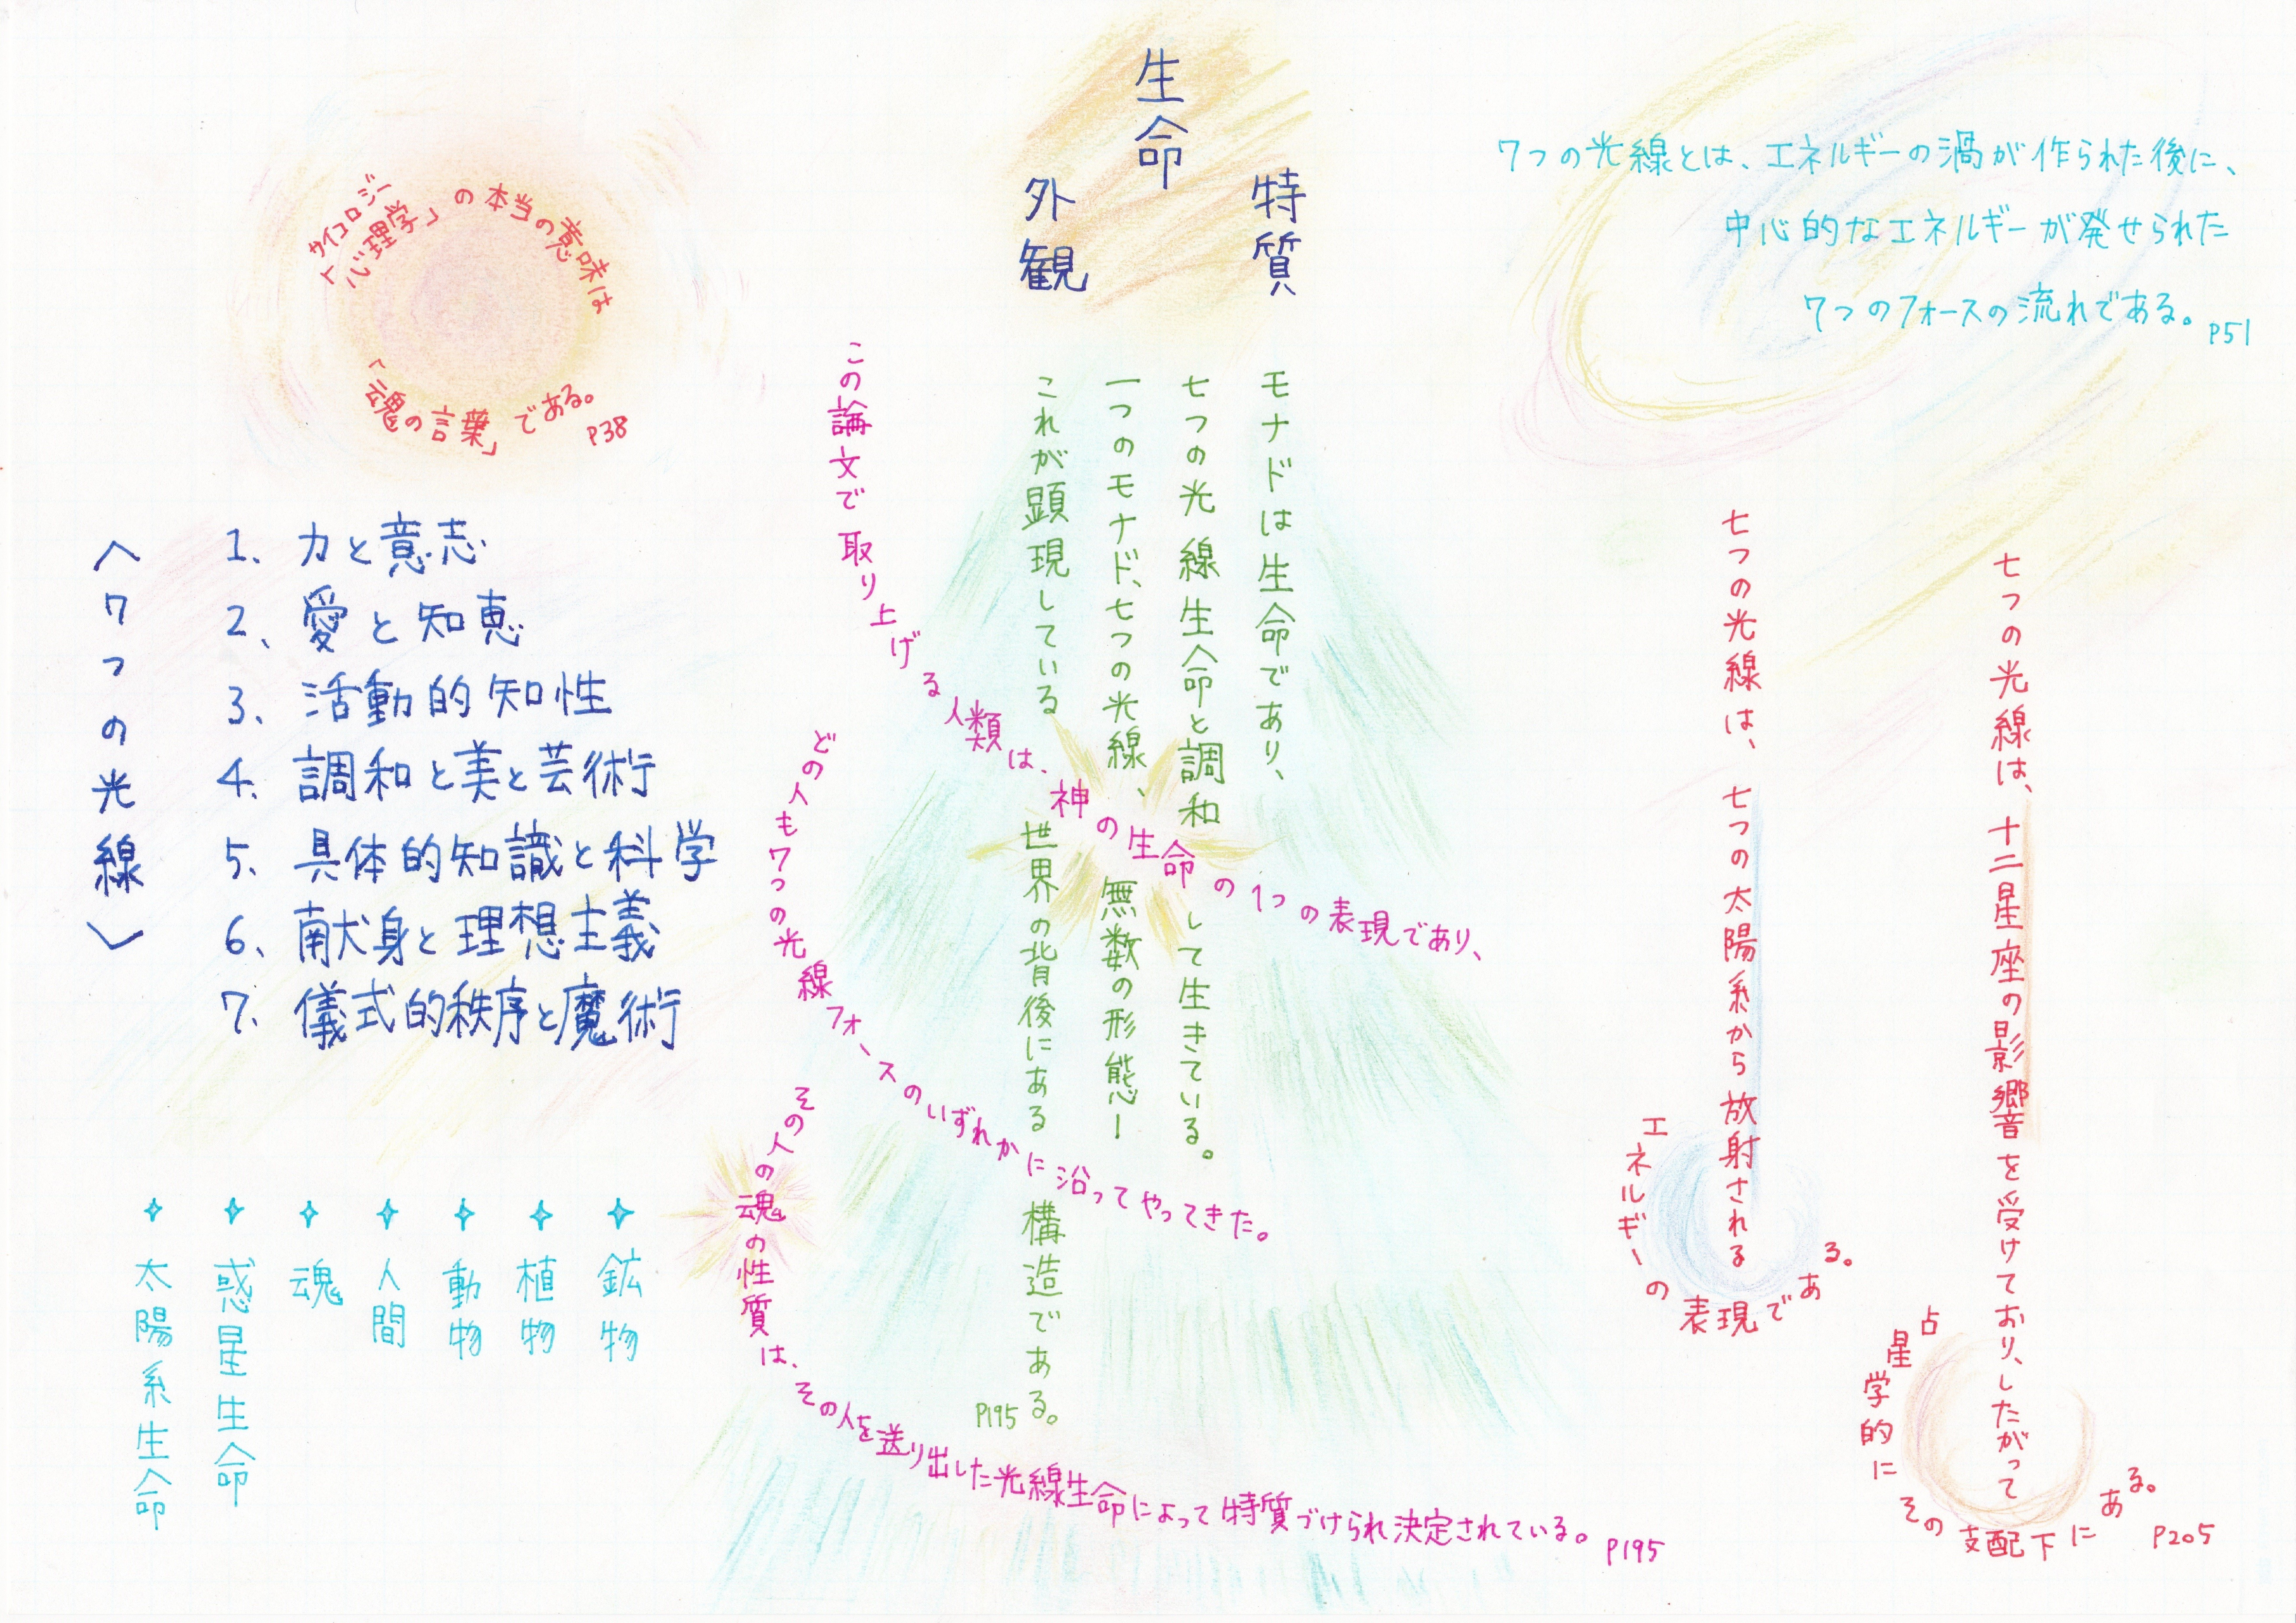 生命
特質
外観
「心理学」の本当の意味は
サイコロジー
「魂の言葉」である。
P38
7つの光線とは、エネルギーの渦が作られた後に、
中心的なエネルギーが発せられた
7つのフォースの流れである。
P51
〈7つの光線〉
1、力と意志
2、愛と知恵
3、活動的知性
4、調和と美と芸術
5、具体的知識と科学
6、献身と理想主義
7、儀式的秩序と魔術
鉱物
植物
動物
人間
魂
惑星生命
太陽系生命
モナドは生命であり、
七つの光線生命と調和して生きている。
一つのモナド、七つの光線、無数の形態ー
これが顕現している世界の背後にある構造である。
P195
この論文で取り上げる人類は、神の生命の1つの表現であり、
どの人も7つの光線フォースのいずれかに沿ってやってきた。
その人の魂の性質は、その人を送り出した光線生命によって特質づけられ決定されている。
P195
七つの光線は、十二星座の影響を受けており、したがって
占星学的にその支配下にある。
P205
七つの光線は、七つの太陽系から放射される
エネルギーの表現である。